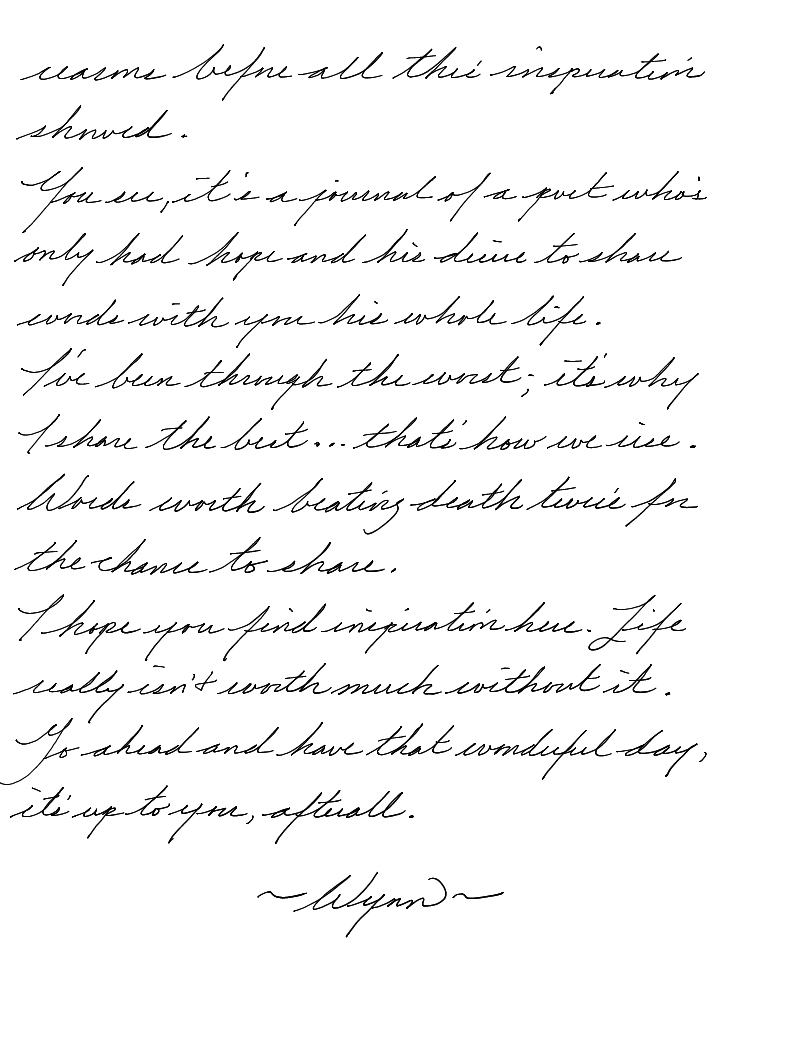 reasons before all this inspiration
showed.
You see, it's a journal of a poet who's
only had hope and his desire to share
words with you his whole life.
I've been through the worst; it's why
I share the best... that's how we rise.
Words worth beating death twice for
the chance to share.
I hope you find inspiration here. Life
really isn't worth much without it.
Go ahead and have that wonderful day,
it's up to you, afterall.
~Wynn~